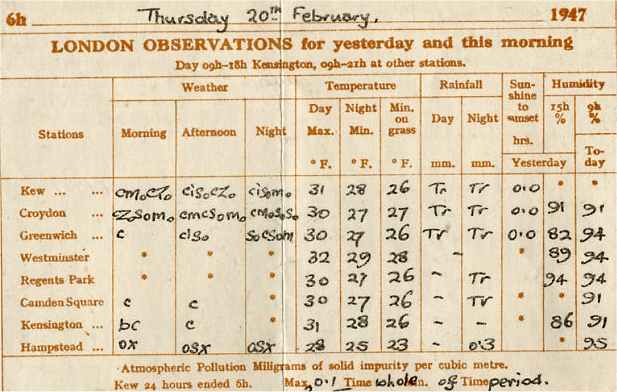 6h Thursday 20th February, 1947
LONDON OBSERVATIONS for yesterday and this morning
Day 09h-18h Kensington, 09h-21h at other stations.
Stations Weather Temperature Rainfall Sun-shine to sunset hrs. Humidity
Morning Afternoon Night Day Max. Night Min. Min. on grass Day Night 15h % 9h %
°F. °F. °F. mm. mm. Yesterday To-day
Kew ... ... 31 28 26 Tr Tr 0.0 * *
Croydon ... 30 27 27 Tr Tr 0.0 91 91
Greenwich ... c 30 27 26 Tr Tr 0.0 82 94
Westminster * * * 32 29 28 - * 89 94
Regents Park * * * 30 27 26 - Tr 94 94
Camden Square c c * 30 27 26 - Tr * * 91
Kensington ... bc c * 31 28 26 - - * 86 91
Hampstead ... ox osx osx 28 25 23 - 0.3 * 95
Atmospheric Pollution Miligrams of solid impurity per cubic metre.
Kew 24 hours ended 6h. Max. 0.1 Time whole Min. of Time period.